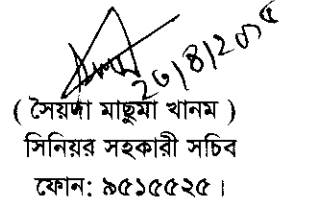 ২০/৪/২০১৫
( সৈয়দা মাছুমা খানম )
সিনিয়র সহকারী সচিব
ফোন: ৯৫১৫৫২৫।